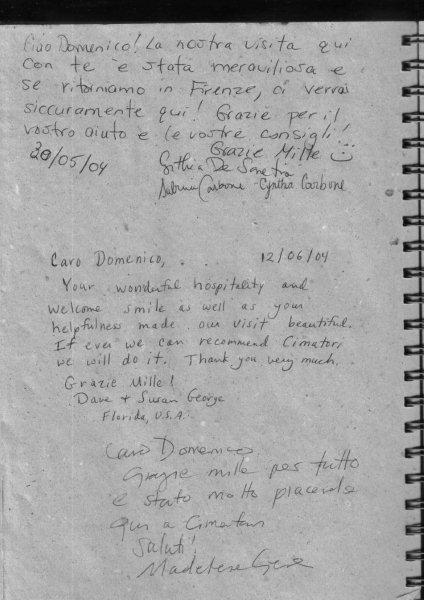 Ciao Domenico! La nostra visita qui
con te è stata meraviliosa e
se ritorniamo in Firenze, ci verrai
siccuramente qui! Grazie per il
vostro aiuto e le vostre consigli!
Grazie Mille
30/05/04
Sabrina Carbone Cynthia Carbone
Caro Domenico, 12/06/04
Your wonderful hospitality and
welcome smile as well as your
helpfulness made our visit beautiful.
If ever we can recommend Cimatori
we will do it. Thank you very much.
Grazie Mille!
Dave + Susan George
Florida, U.S.A.
Caro Domenico
Grazie mille per tutto
è stato molto piacevole
qui a Cimatori
Saluti!